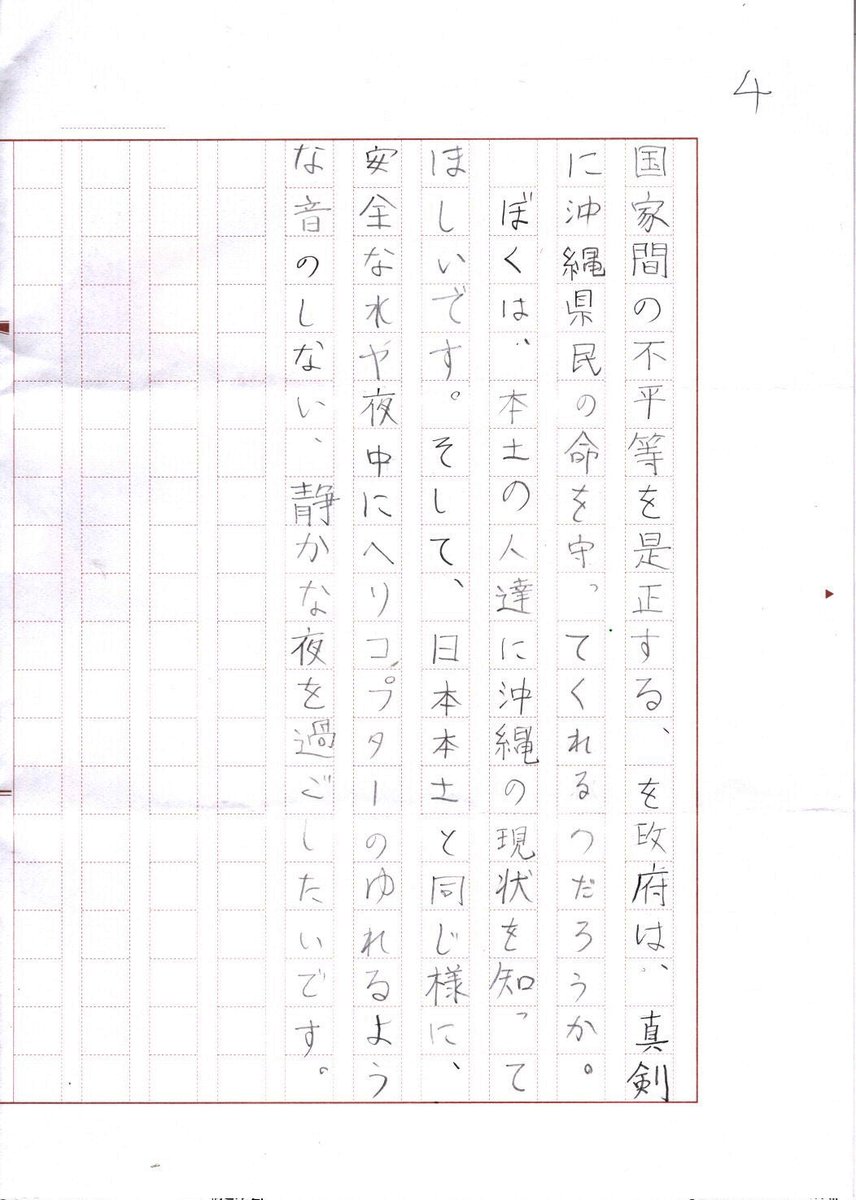 4
国家間の不平等を是正する、を政府は、真剣
に沖縄県民の命を守ってくれるつだろうか。
ぼくは、本土の人達に沖縄の現状を知って
ほしいです。そして、日本本土と同じ様に、
安全な水や夜中にヘリコプターのゆれるよう
な音のしない、静かな夜を過ごしたいです。